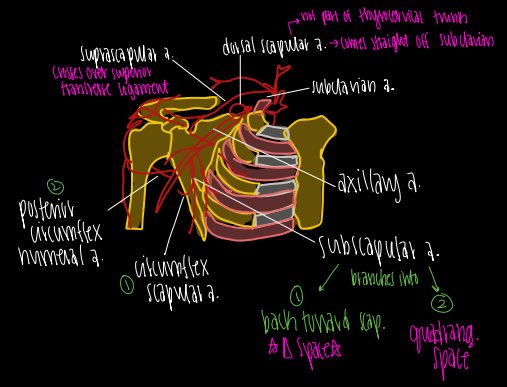 not part of thyrocervical trunk
suprascapular a.
dorsal scapular a.
→ comes straight off subclavian
crosses over superior
transverse ligament
subclavian a.
axillary a.
②
posterior
circumflex
humeral a.
① circumflex
scapular a.
subscapular a.
branches into
①
back toward scap.
☆ Δ space ☆
②
quadrang.
space